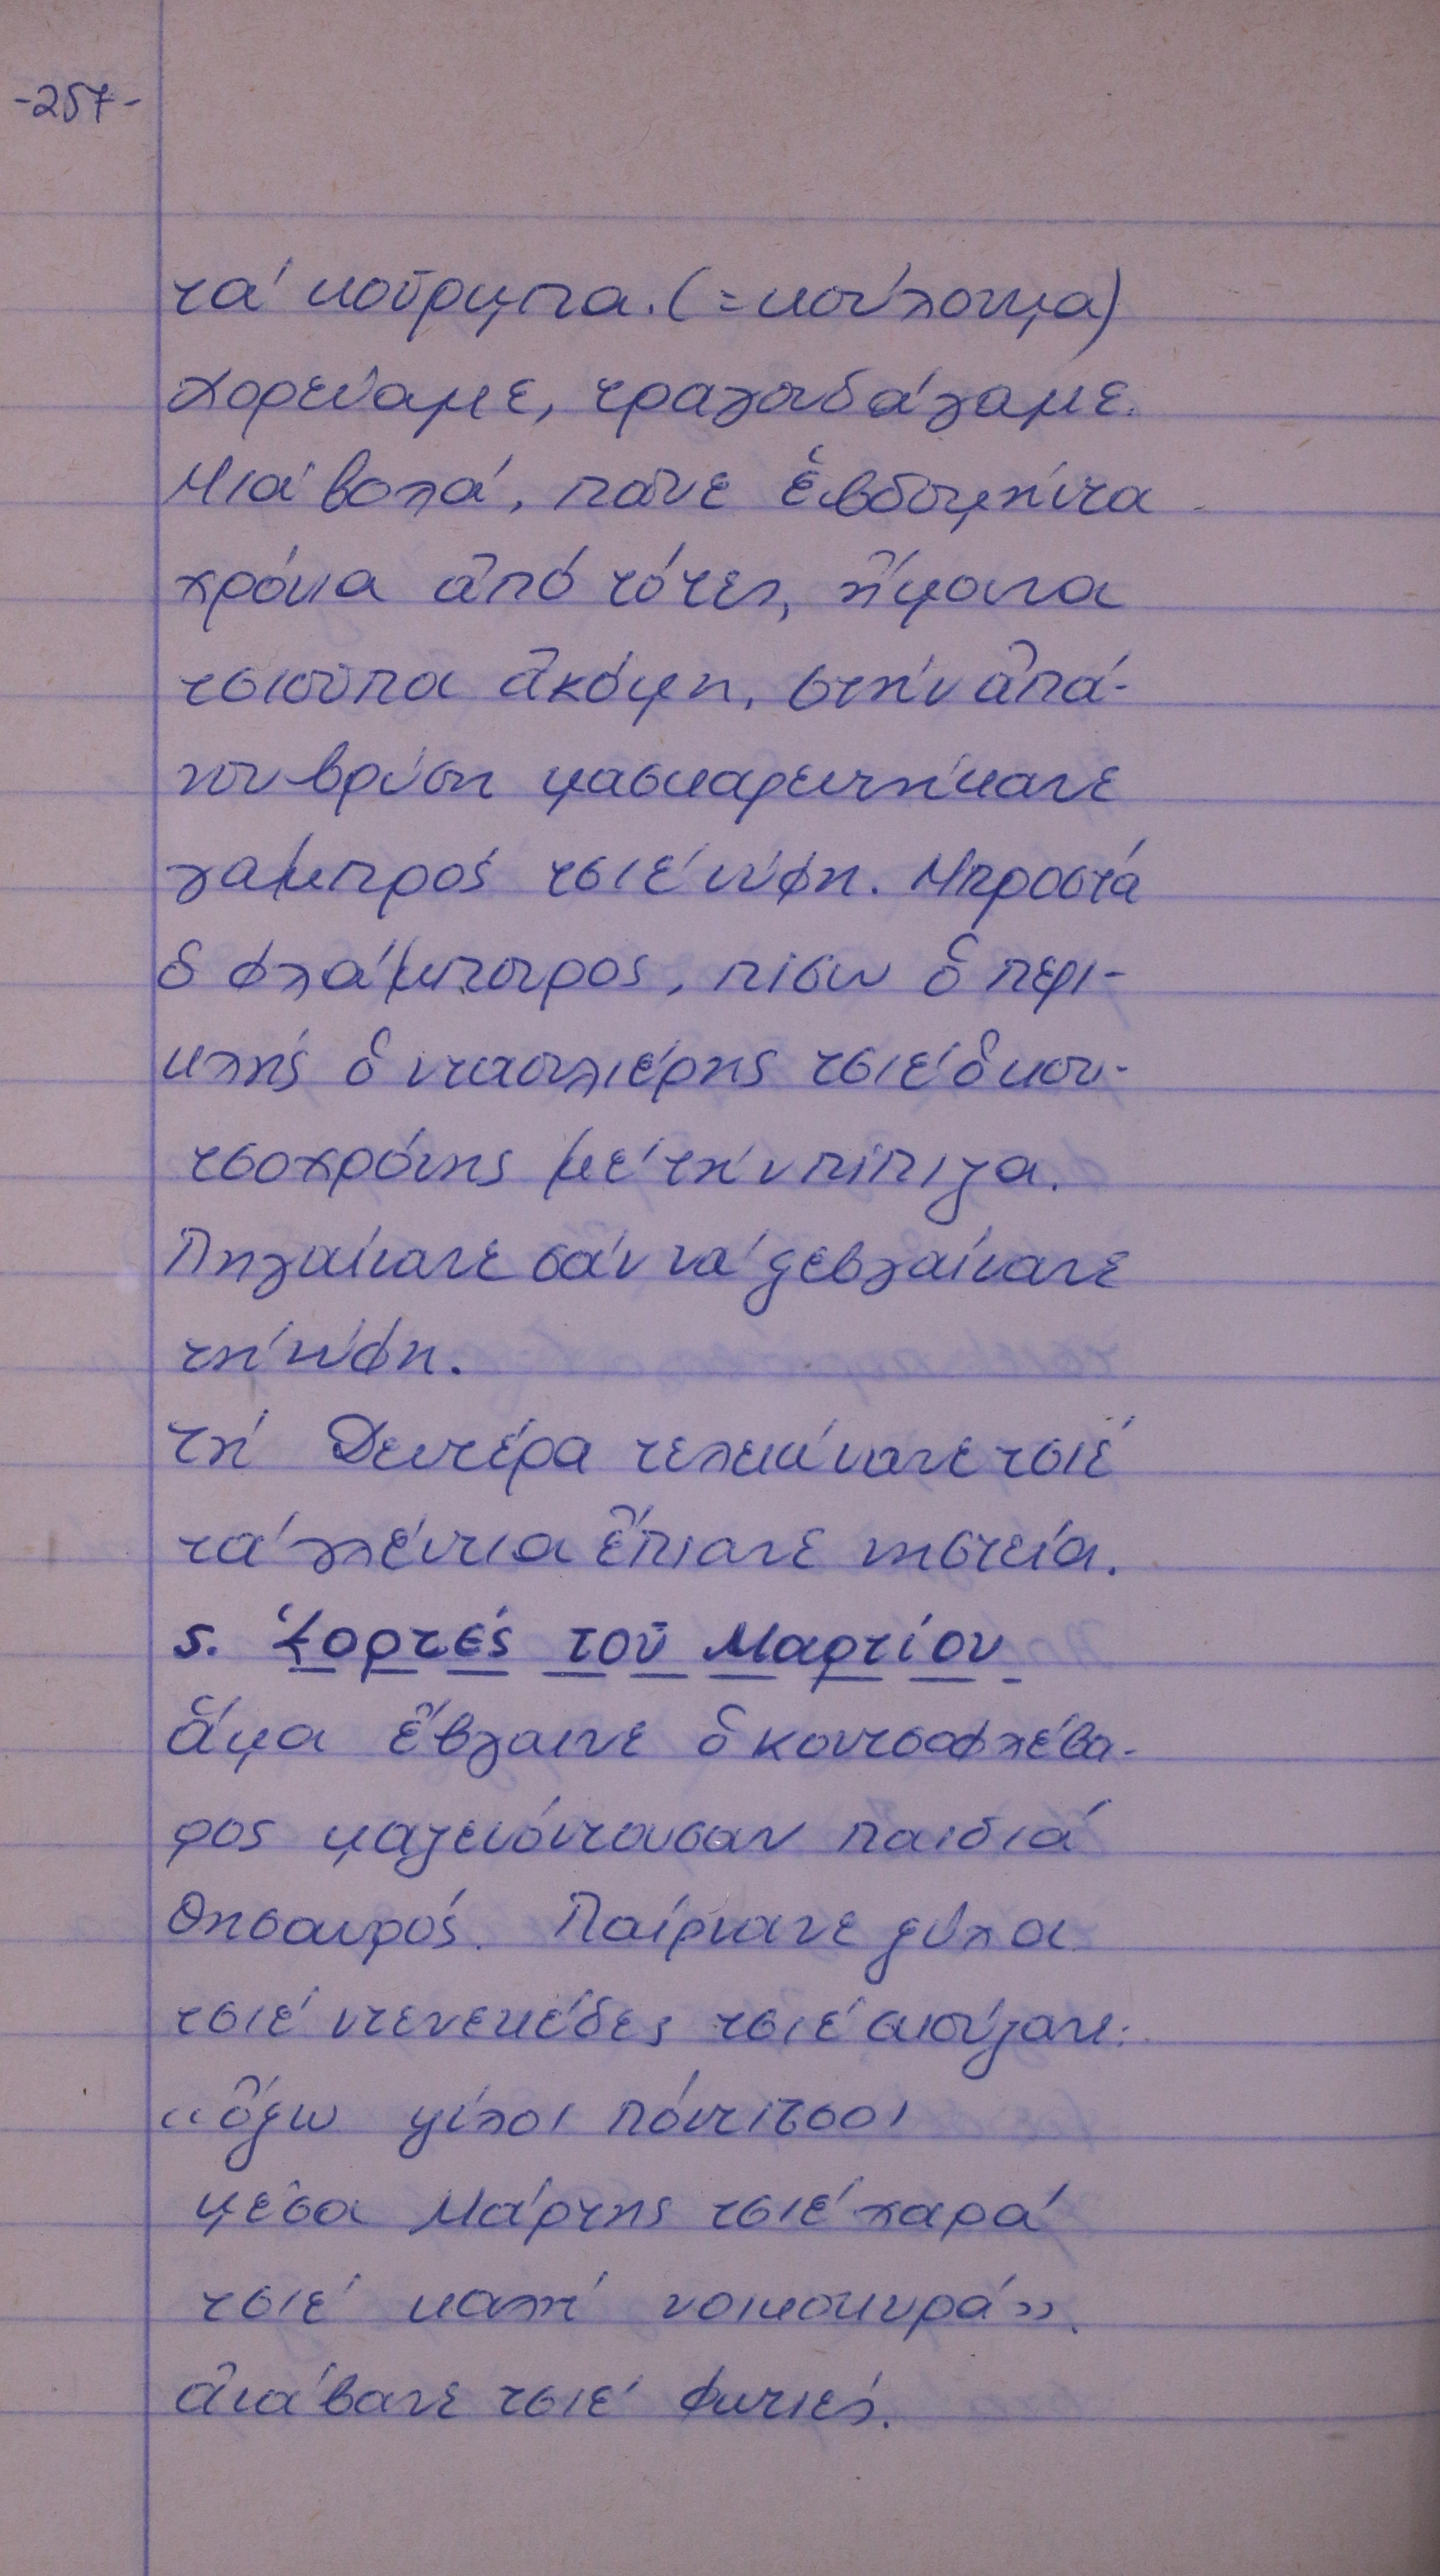 -257-
τά κούρμπα. (=κούλουμα)
χορεύαμε, τραγουδάγαμε.
Μιά βολά, πᾶνε ἑβδομήντα
χρόνια ἀπό τότες, ἤμουνα
τσιούπα ἀκόμη, στήν ἀπά-
νου βρύση μασκαρευτήκανε
γαμπρός τσιέ νύφη. Μπροστά
ὁ φλάμπουρος, πίσω ὁ περι-
κλής ὁ νταουλιέρης τσιέ ὁ κου-
τσοχρόνης μέ τήν πίπιζα.
Πηγαίνανε σάν νά ξεβγαίνανε
τή νύφη.
τή Δευτέρα τελειώνανε τσιέ
τά γλέντια ἔπιανε νηστεία.
5. Ἑορτές τοῦ Μαρτίου
ἅμα ἔβγαινε ὁ κουτσοφλέβα-
ρος μαζευόντουσαν παιδιά
θησαυρός. Παίρνανε ξύλα
τσιέ ντενεκέδες τσιέ σιούζανε:
«ὄξω ψύλοι πόντιτσοι
μέσα Μάρτης τσιέ χαρά
τσιέ καλή νοικοκυρά».
ἀνάβανε τσιέ φωτιές.